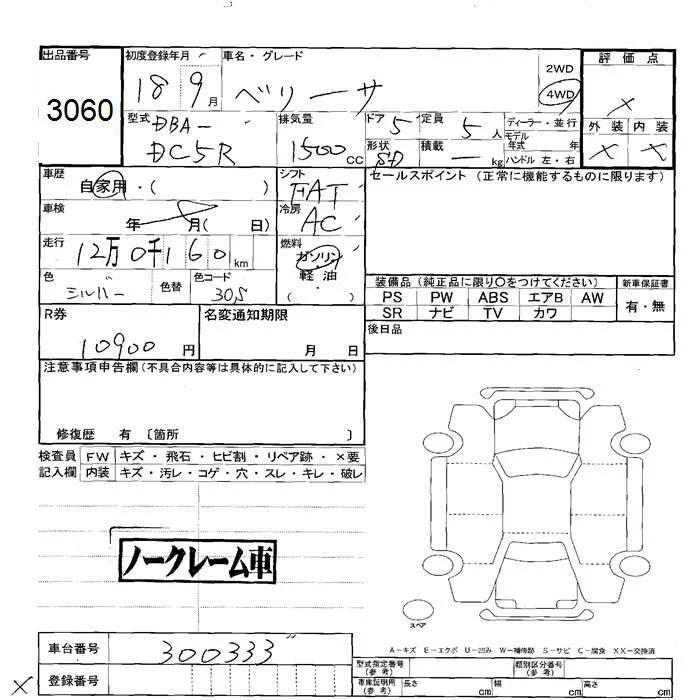 出品番号 初度登録年月 車名・グレード 評価点
3060 18 9月 ベリーサ 2WD 4WD ×
型式 DBA- 排気量 ドア 5 定員 5人 ディーラー・並行 外装 内装
DC5R 1500cc 形状 5D 積載 ー kg モデル年式 年 ハンドル 左・右 × ×
車歴 自家用・( ) シフト FAT セールスポイント (正常に機能するものに限ります)
車検 年 月( 日) 冷房 AC
走行 12万0千160km 燃料 ガソリン
色 シルバー 色替 色コード 30S 軽油・( )
装備品 (純正品に限り〇をつけてください) 新車保証書
PS PW ABS エアB AW 有・無
SR ナビ TV カワ
R券 名変通知期限 後日品
10900円 月 日
注意事項申告欄(不具合内容等は具体的に記入して下さい)
修復歴 有 〔箇所 〕
検査員 FW キズ・飛石・ヒビ割・リペア跡・×要
記入欄 内装 キズ・汚レ・コゲ・穴・スレ・キレ・破レ
ノークレーム車
スペア
A-キズ E-エクボ U-凹み W-補修跡 S-サビ C-腐食 XX-交換済
車台番号 300333
型式指定番号(参考) 類別区分番号(参考)
× 登録番号
車庫証明用(参考) 長さ cm 幅 cm 高さ cm